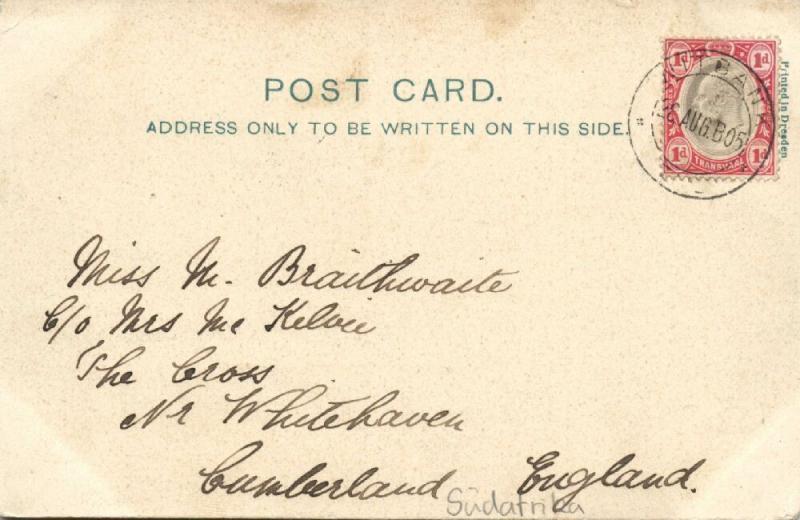 POST CARD.
ADDRESS ONLY TO BE WRITTEN ON THIS SIDE.
1d 1d
BANK
AUG.B05
1d TRANSVAAL 1d
Printed in Dresden
Miss M. Braithwaite
C/o Mrs Mc Kelvie
The Cross
Nr Whitehaven
Cumberland England.
Südafrika